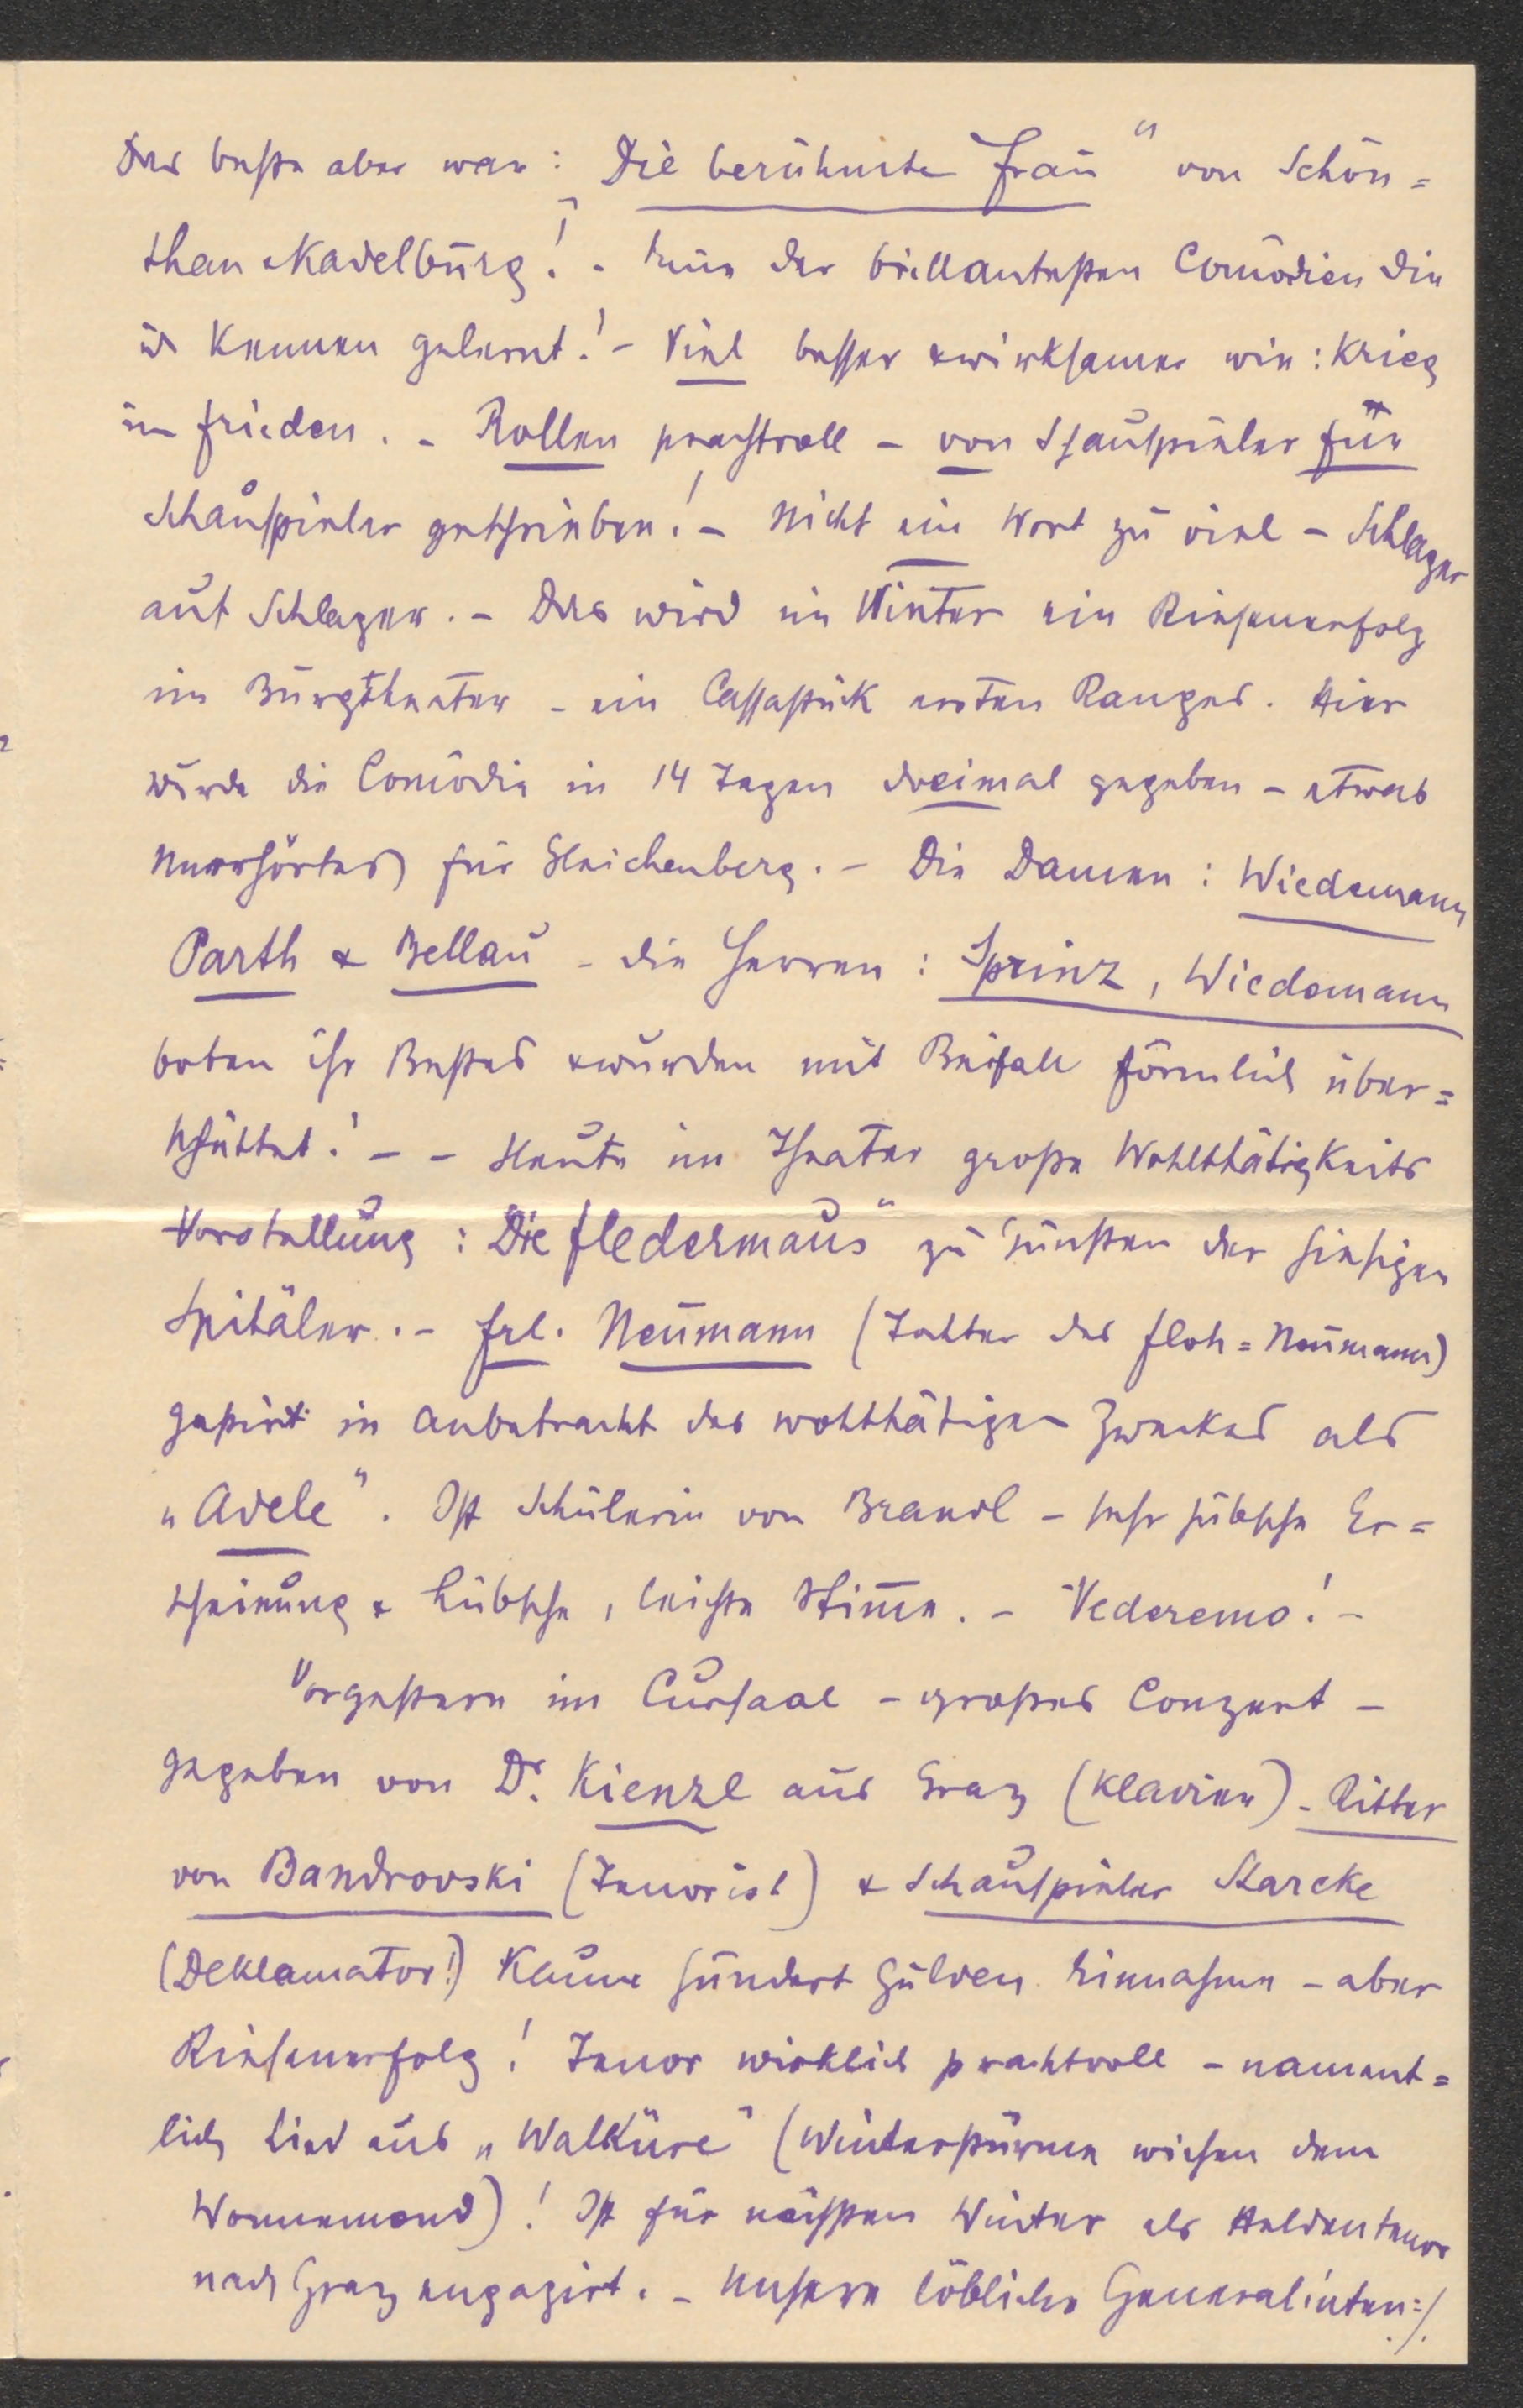 Das beste aber war: Die berühmte Frau" von Schön=
than & Kadelburg! - Eine der brillantesten Comödien die
ich kennen gelernt! - Viel besser & wirksamer wie: Krieg
im Frieden. - Rollen prachtvoll - von Schauspieler für
Schauspieler geschrieben! - Nicht ein Wort zu viel - Schlager
auf Schlager. - Das wird im Winter ein Riesenerfolg
im Burgtheater - ein Cassastück ersten Ranges. Hier
wurde die Comödie in 14 Tagen dreimal gegeben - etwas
Unerhörtes für Gleichenberg. - Die Damen: Wiedemann
Parth & Bellau - die Herren: Sprinz, Wiedemann
boten ihr Bestes & wurden mit Beifall förmlich über=
schüttet! - - Heute im Theater große Wohlthätigkeits
Vorstellung: Die Fledermaus" zu Gunsten der hiesigen
Spitäler. - Frl. Neumann (Tochter des Floh=Neumann)
gastirt in Anbetracht des wohlthätigen Zweckes als
„Adele". Ist Schülerin von Brandl - sehr hübsche Er=
scheinung & hübsche, leichte Stimme. - Vederemo! -
Vorgestern im Cursaal - großes Conzert -
gegeben von Dr. Kienzl aus Graz (Klavier) - Ritter
von Bandrovski (Tenorist) & Schauspieler Starcke
(Deklamator!) Kaum hundert Gulden Einnahme - aber
Riesenerfolg! Tenor wirklich prachtvoll - nament=
lich Lied aus „Walküre" (Winterstürme wichen dem
Wonnemond)! Ist für nächsten Winter als Heldentenor
nach Graz engagirt. - Unsere löbliche Generalinten=/.